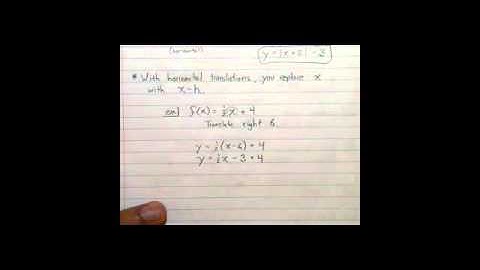 (horizontal)
y = |x + 2| - 3
* With horizontal translations, you replace x
with x-h.
ex) f(x) = ½x + 4
Translate right 6.
y = ½(x-6) + 4
y = ½x - 3 + 4